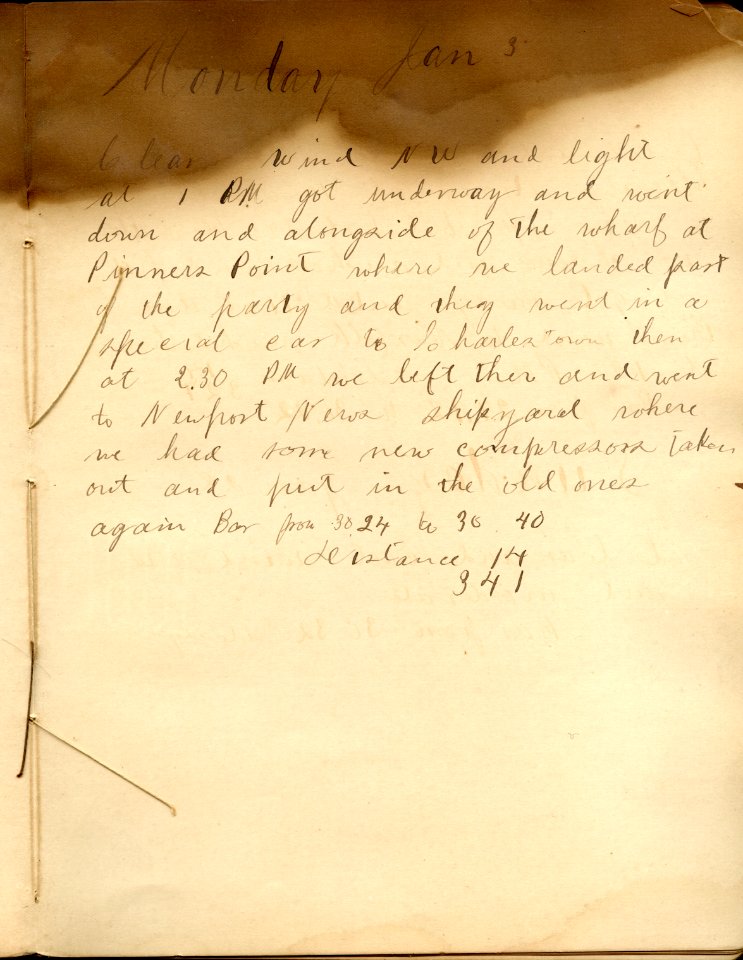 Monday Jan 3
Clear wind NW and light
at 1 PM got underway and went
down and alongside of the wharf at
Pinners Point where we landed part
of the party and they went in a
special car to Charlestown then
at 2.30 PM we left ther and went
to Newport News shipyard where
we had some new compressors taken
out and put in the old ones
again Bar from 30 24 to 30 40
Distance 14
341